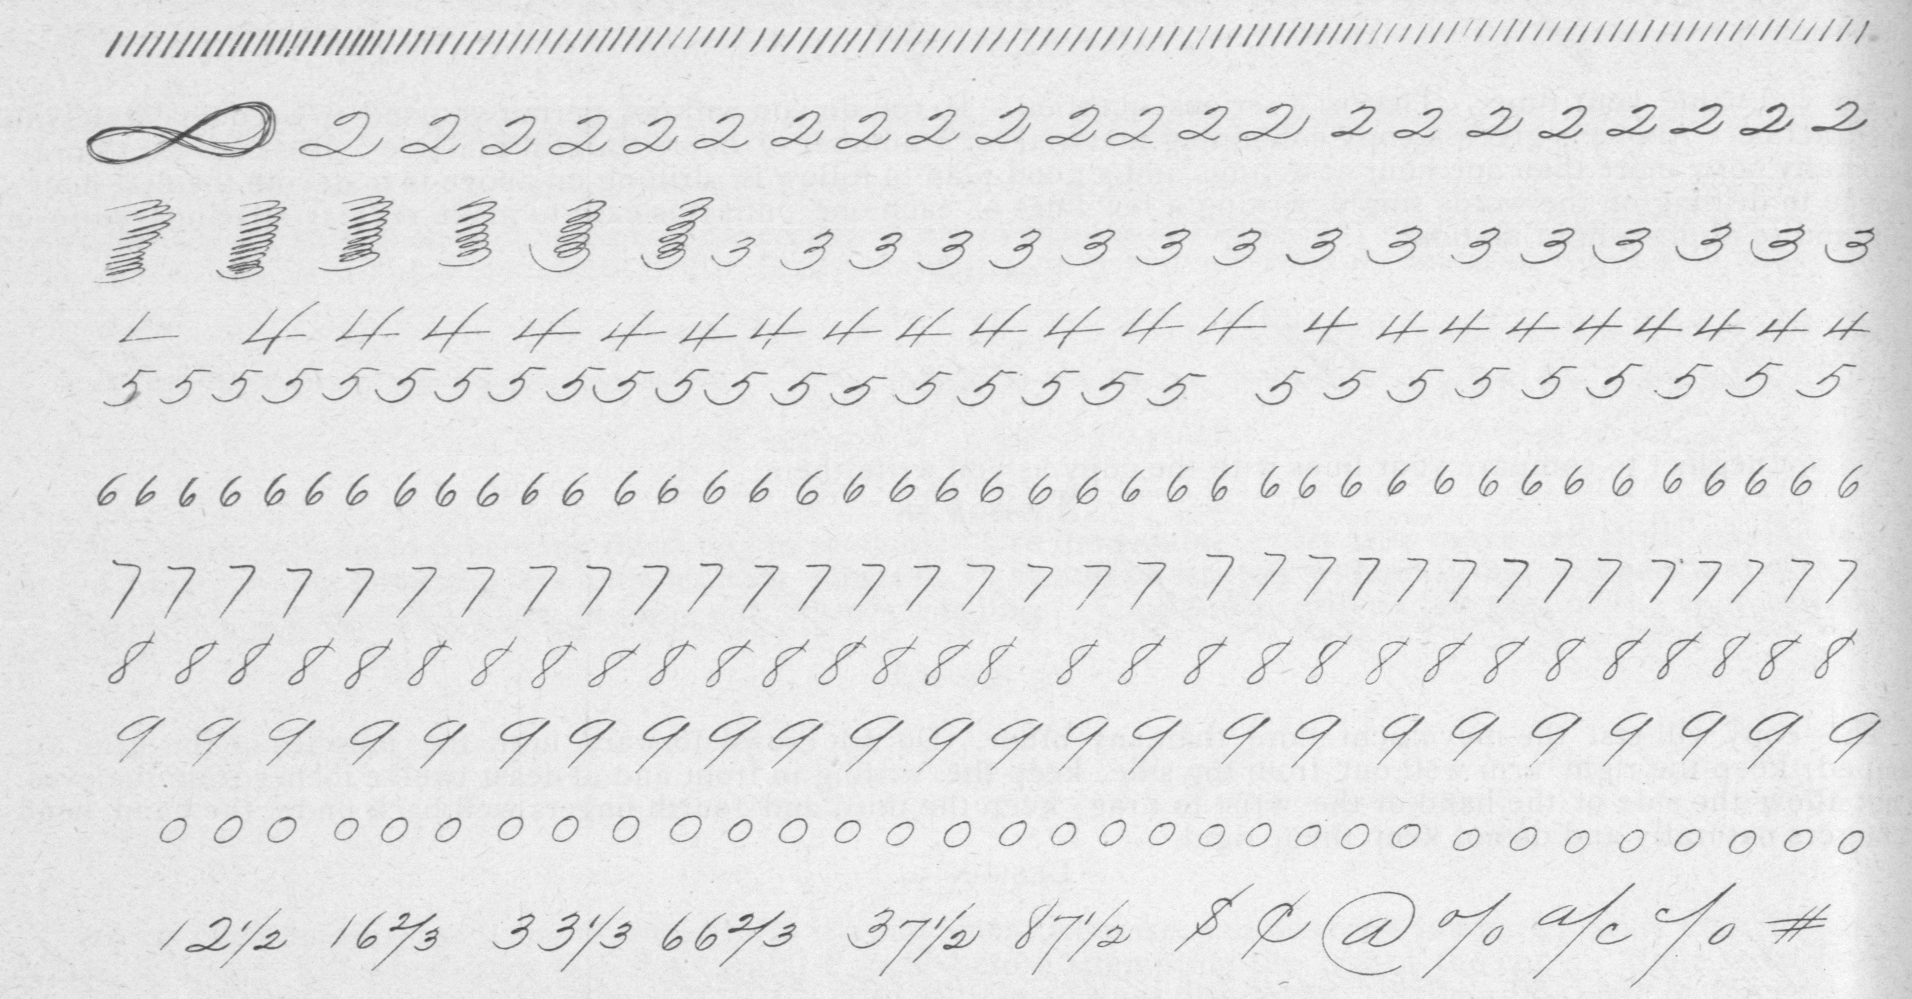 2 2 2 2 2 2 2 2 2 2 2 2 2 2 2 2 2 2 2 2 2 2
3 3 3 3 3 3 3 3 3 3 3 3 3 3 3 3
4 4 4 4 4 4 4 4 4 4 4 4 4 4 4 4 4 4 4 4 4 4
5 5 5 5 5 5 5 5 5 5 5 5 5 5 5 5 5 5 5 5 5 5 5 5 5 5 5 5
6 6 6 6 6 6 6 6 6 6 6 6 6 6 6 6 6 6 6 6 6 6 6 6 6 6 6 6 6 6 6 6 6 6 6 6 6 6 6 6
7 7 7 7 7 7 7 7 7 7 7 7 7 7 7 7 7 7 7 7 7 7 7 7 7 7 7 7 7 7 7 7 7
8 8 8 8 8 8 8 8 8 8 8 8 8 8 8 8 8 8 8 8 8 8 8 8 8 8 8 8 8 8
9 9 9 9 9 9 9 9 9 9 9 9 9 9 9 9 9 9 9 9 9 9 9 9
0 0 0 0 0 0 0 0 0 0 0 0 0 0 0 0 0 0 0 0 0 0 0 0 0 0 0 0 0 0 0 0
12 1/2 16 2/3 33 1/3 66 2/3 37 1/2 87 1/2 $ ¢ @ % a/c c/o #